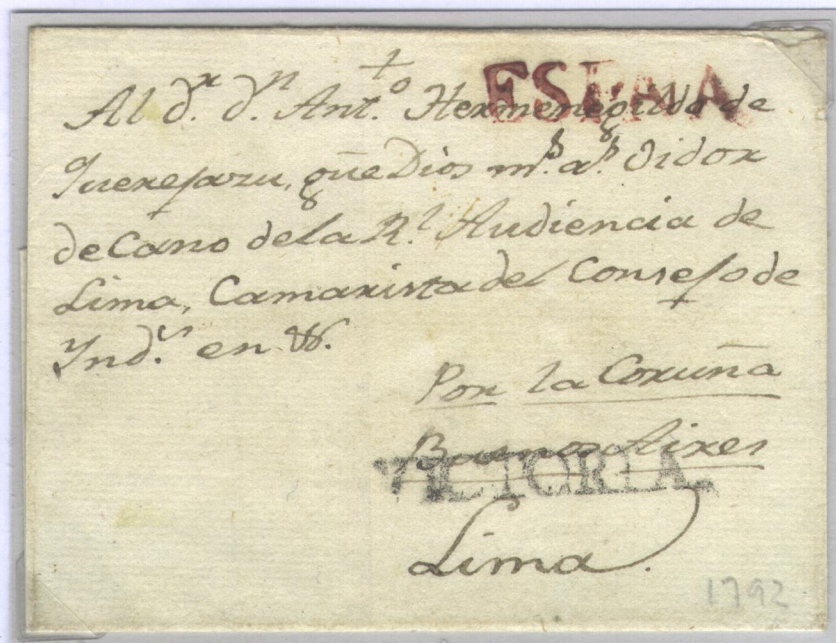 ESPAÑA
Al d.r d.n Ant.o Hermenegildo de
Querejazu, q̃ue Dios m.s a.s Oidor
de Cano de la R.l Audiencia de
Lima, Camarista del Consejo de
Ynd.s en
Por la Coruña
Buenos Aires
VICTORIA.
Lima.
1792